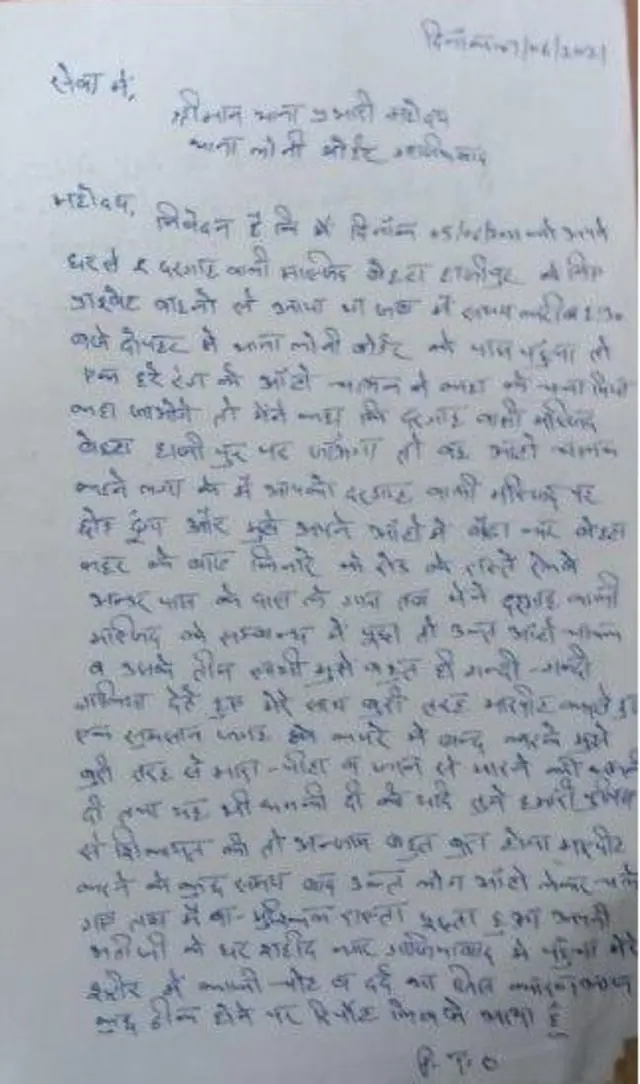 दिनांक 07/06/2021
सेवा में,
श्रीमान थाना प्रभारी महोदय
थाना लोनी बोर्डर गाजियाबाद
महोदय,
निवेदन है कि मैं दिनाँक 05/06/2021 को अपने
घर से दरगाह वाली मस्जिद बेहटा हाजीपुर के लिए
प्राइवेट वाहनो से आया था जब मैं समय करीब 1:30
बजे दोपहर में थाना लोनी बोर्डर के पास पहुंचा तो
एक हरे रंग के ऑटो चालक ने कहा के चचा मियां
कहा जाओगे तो मैने कहा कि दरगाह वाली मस्जिद
बेहटा हाजीपुर पर जाऊंगा तो वह ऑटो चालक
कहने लगा के मैं आपको दरगाह वाली मस्जिद पर
छोड़ दूंगा और मुझे अपने ऑटो में बैठा कर बेहटा
नहर के किनारे के रोड के रास्ते रेलवे
अन्डर पास के पास ले गया तब मैने दरगाह वाली
मस्जिद के सम्बन्ध में पूछा तो उक्त ऑटो चालक
व उसके तीन साथी मुझे बहुत ही गन्दी-गन्दी
गालियां देते हुए मेरे साथ बुरी तरह मारपीट करते हुए
एक सुनसान जगह कमरे में बन्द करके मुझे
बुरी तरह से मारा-पीटा व जान से मारने की धमकी
दी तथा यह भी धमकी दी के यदि तूने हमारी पुलिस
से शिकायत की तो अन्जाम बहुत बुरा होगा मारपीट
करने के कुछ समय बाद उक्त लोग ऑटो लेकर चले
गए तथा मैं बा-मुश्किल रास्ता पूछता हुआ अपनी
भतीजी के घर शहीद नगर गाजियाबाद में पहुंचा मेरे
शरीर में काफी चोट व दर्द था
कुछ ठीक होने पर रिपोर्ट लिखाने आया हूं
P.T.O